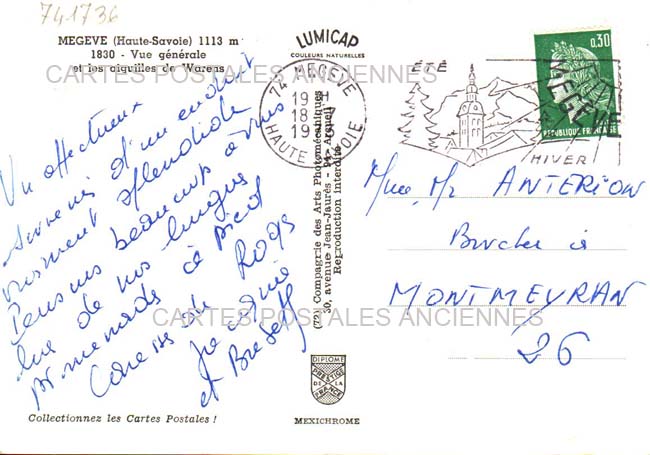 741736
MEGEVE (Haute-Savoie) 1113 m
1830 - Vue générale
et les aiguilles de Warens
LUMICAP
COULEURS NATURELLES
CARTES POSTALES ANCIENNES
74 MEGEVE
19 H
18
19
HAUTE SAVOIE
ÉTÉ
MEGEVE
HIVER
0,30
REPUBLIQUE FRANÇAISE
Un affectueux
souvenir d'un endroit
vraiment splendide
Pensons beaucoup à vous
de nos longues
promenades à
Caresses de
Jeannine
et
(72) Compagnie des Arts Photomécaniques
30, avenue Jean-Jaurès - 94- Arcueil
Reproduction interdite
Mme, Mr ANTERION
Boucher à
MONTMEYRAN
26
CARTES POSTALES ANCIENNES
DIPLOME
PRESTIGE
DE LA
FRANCE
Collectionnez les Cartes Postales !
MEXICHROME